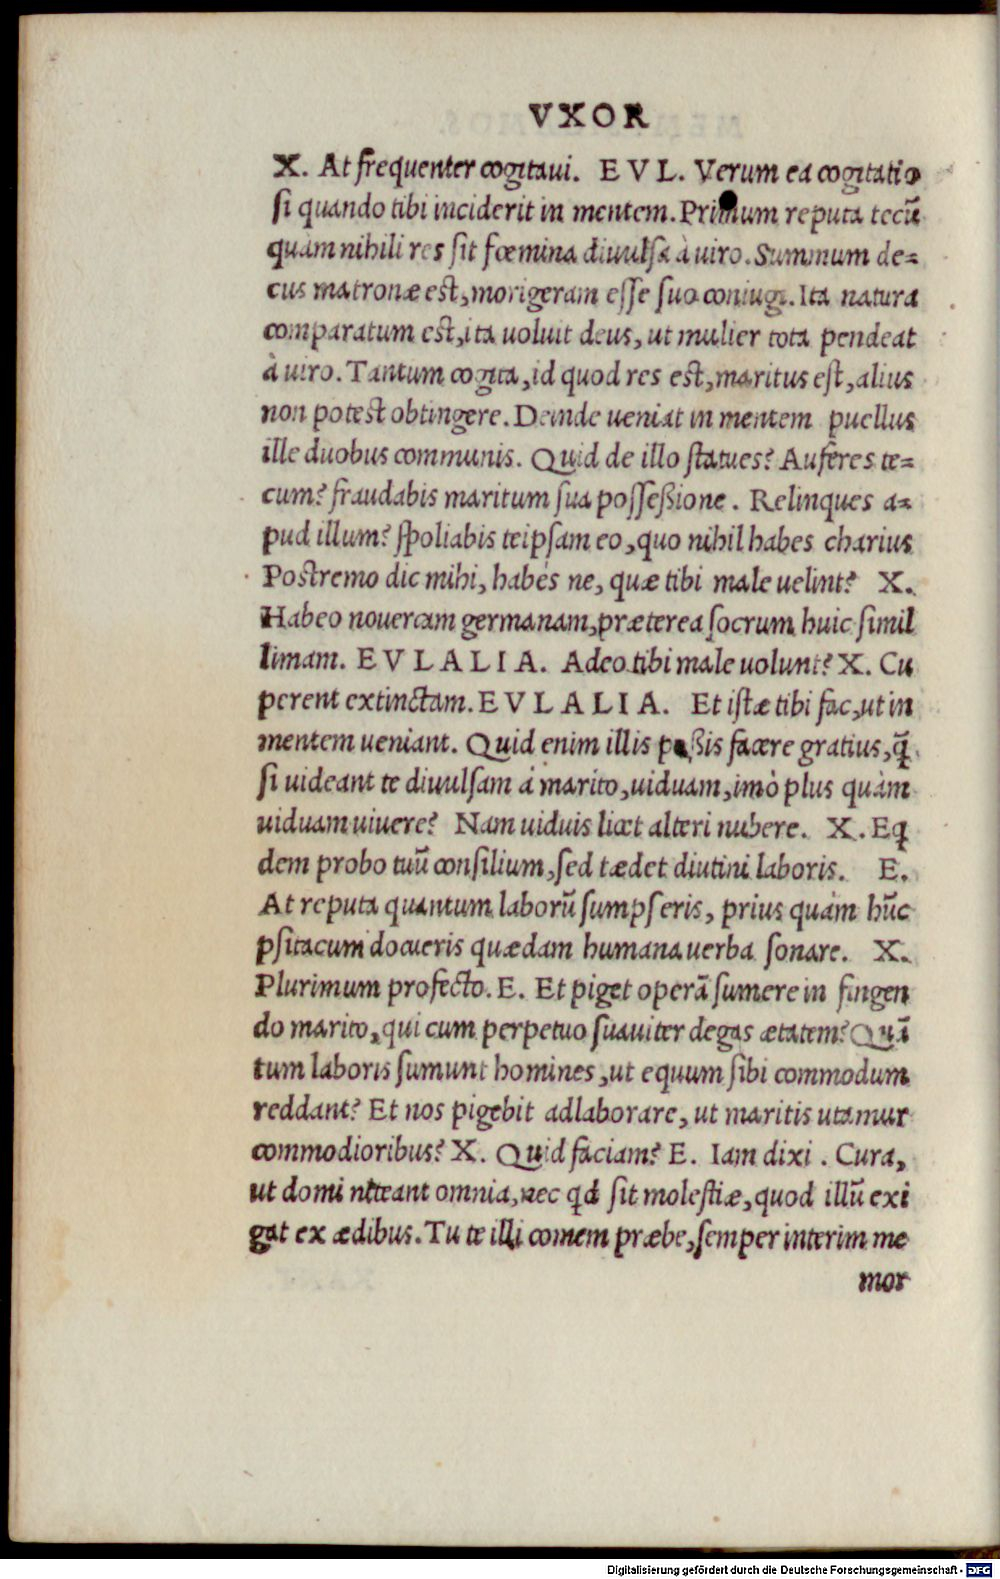 VXOR
X. At frequenter cogitaui. EVL. Verum ea cogitatio
si quando tibi inciderit in mentem. Primum reputa tecū
quàm nihili res sit fœmina diuulsa à uiro. Summum de=
cus matronæ est, morigeram esse suo coniugi. Ita natura
comparatum est, ita uoluit deus, ut mulier tota pendeat
à uiro. Tantum cogita, id quod res est, maritus est, alius
non potest obtingere. Deinde ueniat in mentem puellus
ille duobus communis. Quid de illo statues? Auferes te=
cum? fraudabis maritum sua posseßione. Relinques a=
pud illum? spoliabis teipsam eo, quo nihil habes charius
Postremo dic mihi, habés ne, quæ tibi male uelint? X.
Habeo nouercam germanam, præterea socrum huic simil
limam. EVLALIA. Adeo tibi male uolunt? X. Cu
perent extinctam. EVLALIA. Et istæ tibi fac, ut in
mentem ueniant. Quid enim illis poßis facere gratius, q̃
si uideant te diuulsam á marito, uiduam, imò plus quàm
uiduam uiuere? Nam uiduis licet alteri nubere. X. Eq
dem probo tuū consilium, sed tædet diutini laboris. E.
At reputa quantum laborū sumpseris, prius quàm hūc
psitacum docueris quædam humana uerba sonare. X.
Plurimum profecto. E. Et piget operā sumere in fingen
do marito, qui cum perpetuo suauiter degas ætatem? Quā
tum laboris sumunt homines, ut equum sibi commodum
reddant? Et nos pigebit adlaborare, ut maritis utamur
commodioribus? X. Quid faciam? E. Iam dixi. Cura,
ut domi niteant omnia, nec qd sit molestiæ, quod illū exi
gat ex ædibus. Tu te illi comem præbe, semper interim me
mor
Digitalisierung gefördert durch die Deutsche Forschungsgemeinschaft - DFG